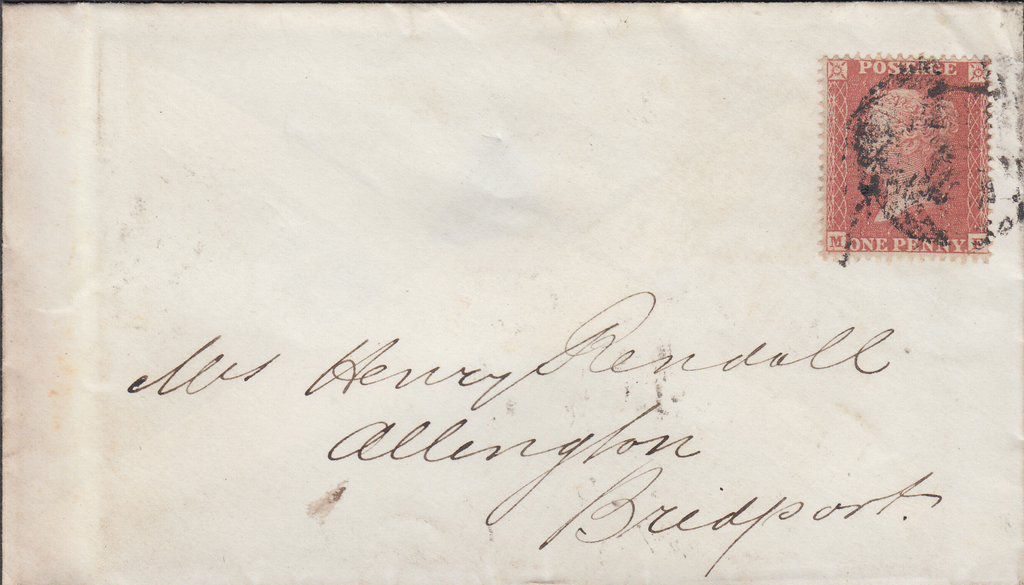 POSTAGE
M ONE PENNY E
Mrs Henry Rendall
Allington
Bridport.